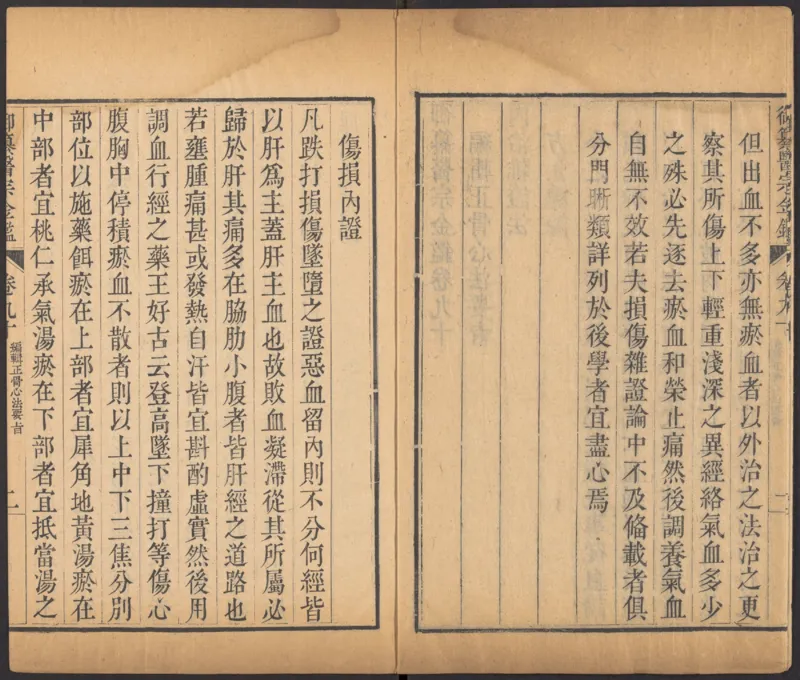 但出血不多亦無瘀血者以外治之法治之更
察其所傷上下輕重淺深之異經絡氣血多少
之殊必先逐去瘀血和榮止痛然後調養氣血
自無不效若夫損傷雜證論中不及備載者俱
分門晰類詳列於後學者宜盡心焉
傷損內證
凡跌打損傷墜墮之證惡血留內則不分何經皆
以肝爲主蓋肝主血也故敗血凝滯從其所屬必
歸於肝其痛多在脇肋小腹者皆肝經之道路也
若壅腫痛甚或發熱自汗皆宜斟酌虛實然後用
調血行經之藥王好古云登高墜下撞打等傷心
腹胸中停積瘀血不散者則以上中下三焦分別
部位以施藥餌瘀在上部者宜犀角地黃湯瘀在
中部者宜桃仁承氣湯瘀在下部者宜抵當湯之
御纂醫宗金鑑
卷九十
編輯正骨心法要旨